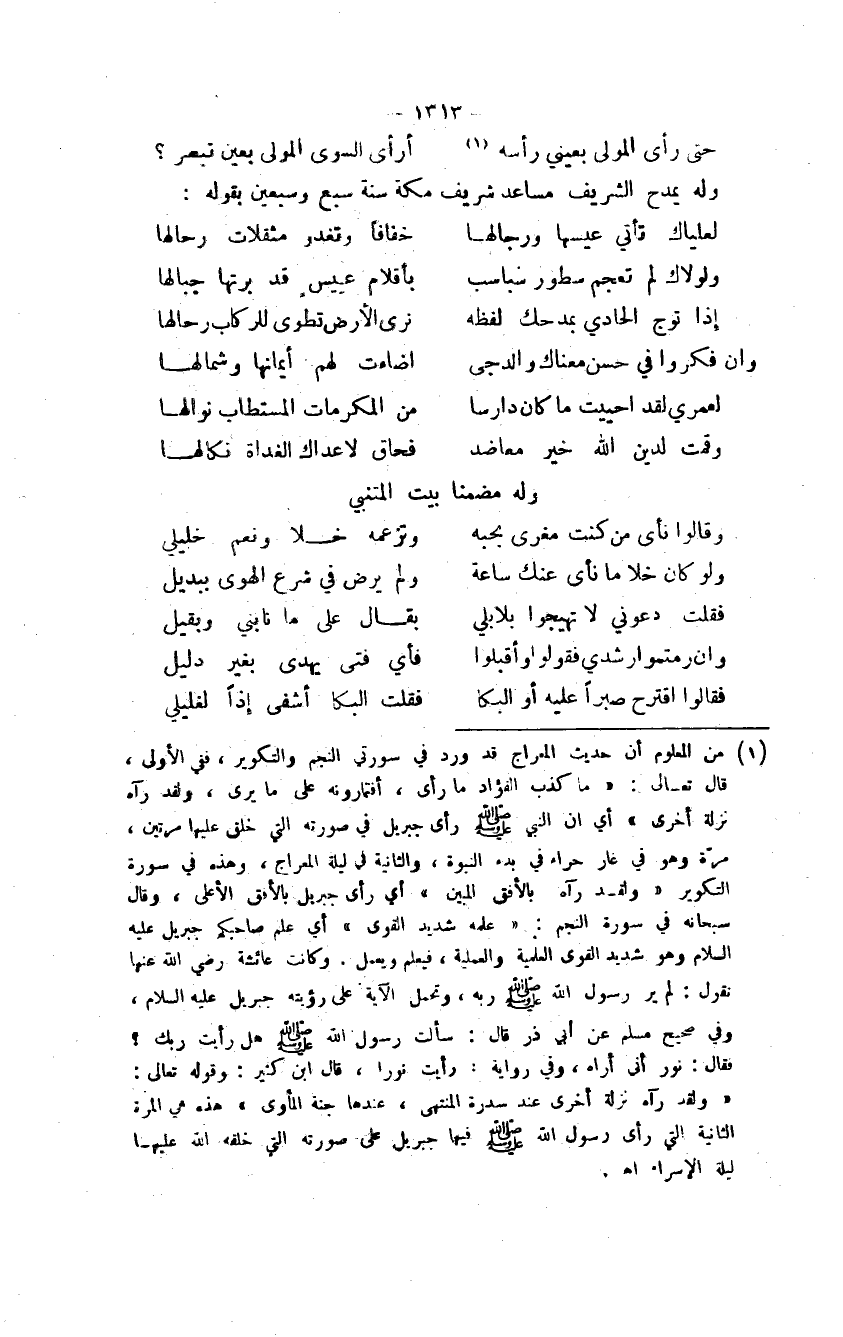 - ١٣١٣ -
حتى رأى المولى بعيني رأسه (١) أرأى السوى المولى بعين تبصر ؟
وله يمدح الشريف مساعد شريف مكة سنة سبع وسبعين بقوله :
لعلياك تأتي عيسها ورجالها خفافاً وتغدو مثقلات رحالها
ولولاك لم تعجم سطور سباسب بأقلام عيس قد برتها جبالها
إذا توج الحادي بمدحك لفظه نرى الأرض تطوى للركاب رحالها
وان فكروا في حسن معناك والدجى اضاءت لهم أيمانها وشمالها
لعمري لقد احييت ما كان دارسا من المكرمات المستطاب نوالها
وقمت لدين الله خير معاضد فحاق لاعداك الغداة نكالها
وله مضمنا بيت المتنبي
وقالوا نأى من كنت مغرى بحبه وتزعمه خلا ونعم خليلي
ولو كان خلا ما نأى عنك ساعة ولم يرض في شرع الهوى ببديل
فقلت دعوني لا تهيجوا بلابلي بقال على ما نابني وبقيل
وان رمتموا رشدي فقولوا وأقبلوا فأي فتى يهدى بغير دليل
فقالوا اقترح صبراً عليه أو البكا فقلت البكا أشفى إذاً لغليلي
(١) من المعلوم أن حديث المعراج قد ورد في سورتي النجم والتكوير ، ففي الأولى ،
قال تعالى : « ما كذب الفؤاد ما رأى ، أفتمارونه على ما يرى ، ولقد رآه
نزلة أخرى » أي ان النبي ﷺ رأى جبريل في صورته التي خلق عليها مرتين ،
مرّة وهو في غار حراء في بدء النبوة ، والثانية في ليلة المعراج ، وهذه في سورة
التكوير « ولقد رآه بالأفق المبين » أي رأى جبريل بالأفق الأعلى ، وقال
سبحانه في سورة النجم : « علمه شديد القوى » أي علم صاحبكم جبريل عليه
السلام وهو شديد القوى العلمية والعملية ، فيعلم ويعمل . وكانت عائشة رضي الله عنها
تقول : لم ير رسول الله ﷺ ربه ، وتحمل الآية على رؤيته جبريل عليه السلام ،
وفي صحيح مسلم عن أبي ذر قال : سألت رسول الله ﷺ هل رأيت ربك ؟
فقال : نور أنى أراه ، وفي رواية : رأيت نورا ، قال ابن كثير : وقوله تعالى :
« ولقد رآه نزلة أخرى عند سدرة المنتهى ، عندها جنة المأوى » هذه هي المرة
الثانية التي رأى رسول الله ﷺ فيها جبريل على صورته التي خلقه الله عليها
ليلة الإسراء اه .